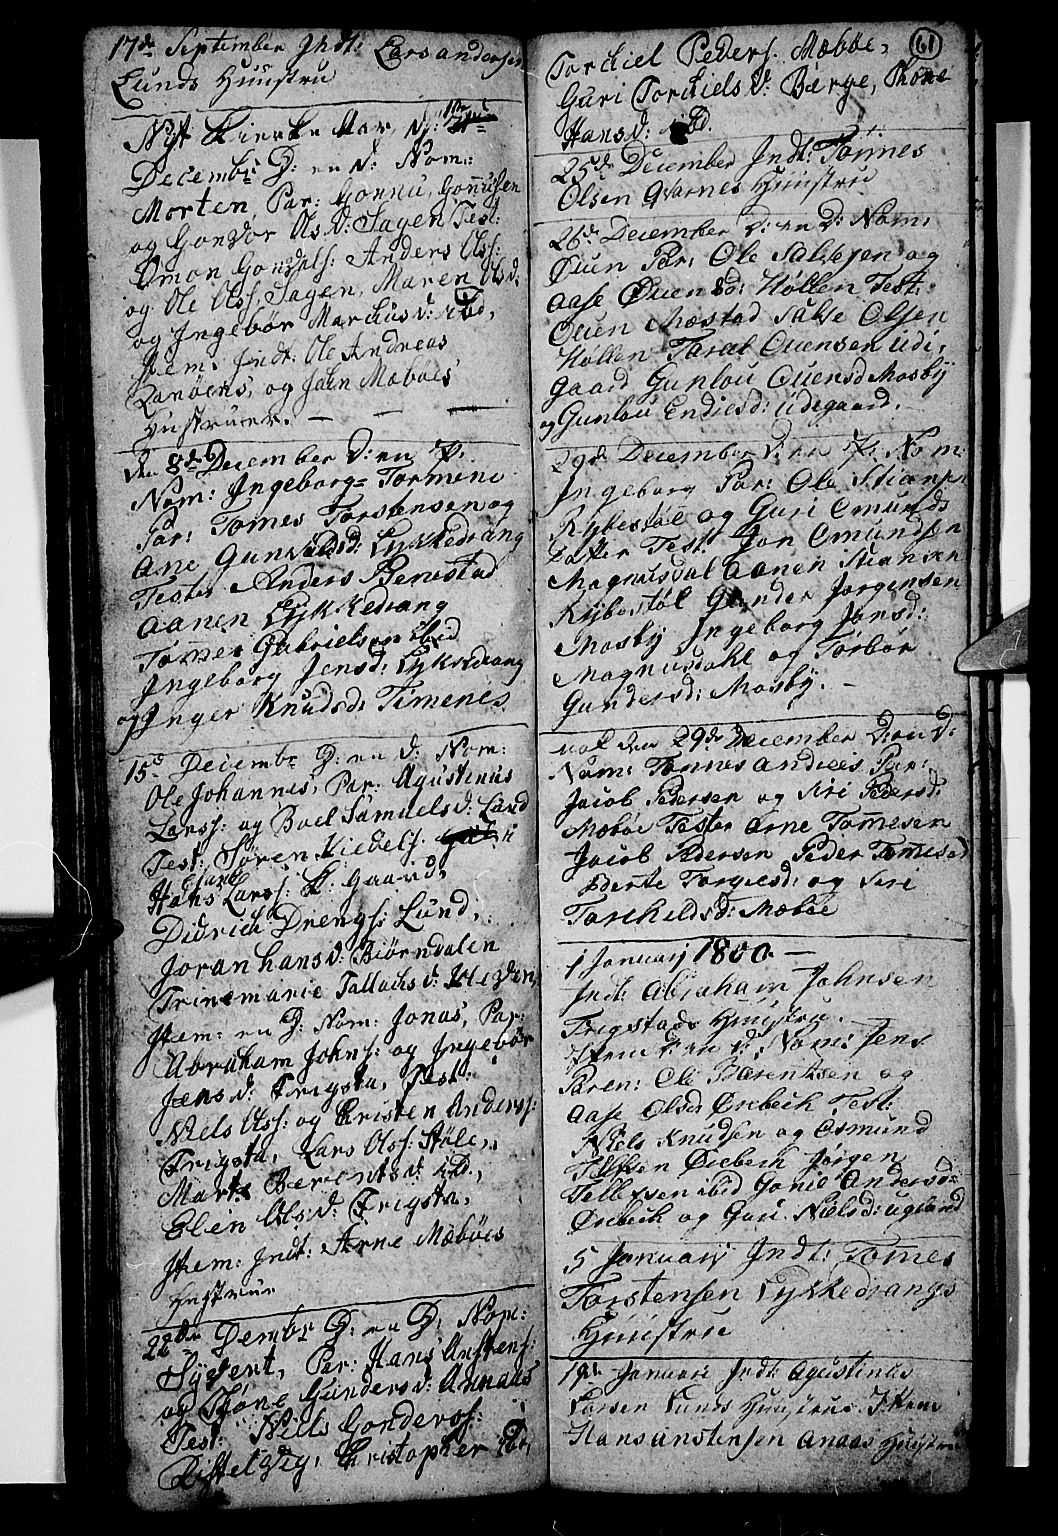 17de September Indt: Lars andersen
Lunds Huustru
Nyt Kierke Aar, d: 1te
Decembr D: en d: Nom:
Morten, Par: Gonnu, Gonnufen
og Gondor Ols d: Sagen Test:
Omon Gondels: Anders Olss:
og Ole Olss, Sagen, Maren Ols d:
og Ingebor Marckus d: ibd,
Item: Indt: Ole Andreas
og John Mæbøes
Hustruer. —
den 8de December d: en P.
Nom: Ingeborg= Tormene
Par: Tomes Torstensen og
Ane Gunvaldsd: Lykkedrang
Tester Anders Benestad
Aanen Lykkedrang
Tomes Gabrielsen ibid
Ingeborg Jensd: Lykkedrang
og Inger Knudsd: Timenes
15d Decembr D: en d: Nom:
Ole Johannes, Par: Agustinus
Larss: og Boel Samuels d: Lund
Test: Søren Kiedels:
Hans Larss: K: Gaard,
Didrich Drengs: Lund,
Joran hans d: Biørndalen
Trinemarie Tallachs d:
Item: en D: Nom: Jonas, Par:
Abraham Johns: og Ingebor
Jens d: Frigsta, Test:
Niels Olss: og Cristen Anderss:
Frigsta, Lars Olss: Støle,
Marte Berents d: ibd,
Elen Ols: d: Frigsta,
Item: Indt: Arne Mæbøes
Hustrue
22de Dembr D: en D: Nom:
Syvent, Par: Hans Anstens:
og Thone Gunders d: Annaas
Test: Niels Gonderss:
Ristelzveig, Christopher ibd,
61
Torckiel Peders. Mæbøe,
Guri Torckiels d: Berge, Thone
Hans d: ibd.
25de December Indt: Tonnes
Olsen Qvarnes Huustrue
26de December d: en d: Nom:
Ouen Par: Ole Salvesen og
Aase Ouens d: Hollen Test:
Ouen Mæstad Salve Olsen
Hollen Taral Ouensen Udi,
gaard Gunlou Ouensd Mosby
og Gunlou Endresd: Udegaard.
29de December d: en P: Nom:
Ingeborg Par: Ole Stiansen
Rybestøl og Guri Omunds
datter Test: Jon Omundsen
Magnusdal Aanen Stiansen
Rybestøl Gunder Jørgensen
Mosby Ingeborg Jonsd:
Magnusdahl og Torbor
Gundersd: Mosby. —
den 29de December D: en d:
Nom: Tønnes Andreas Par:
Jacob Pedersen og Siri Pedersd:
Mæbøe Tester Arne Tomesen
Jacob Pedersen Peder Tomesed
Berte Torgiesd: og Siri
Torchildsd: Mæbøe
1 Januarij 1800. —
Indt: Abraham Johnsen
Frigstads Huustru.
Item d: en d: Nom: Jens
Paren: Ole Bærentsen og
Aase Olsd: Ørebech Test:
Niels Knudsen og Osmund
Ørebech Jørgen
Tellefsen ibid Gonie Andersd=
Ørebech og Guri Nielsd: ugland
5 Januarij Indt: Tomes
Torstensen Lykkedrangs
Huustrue
19de Januari Indt: Agustinus
Larsen Lunds Huustrue Item
Hans anstensen anaas Huustru